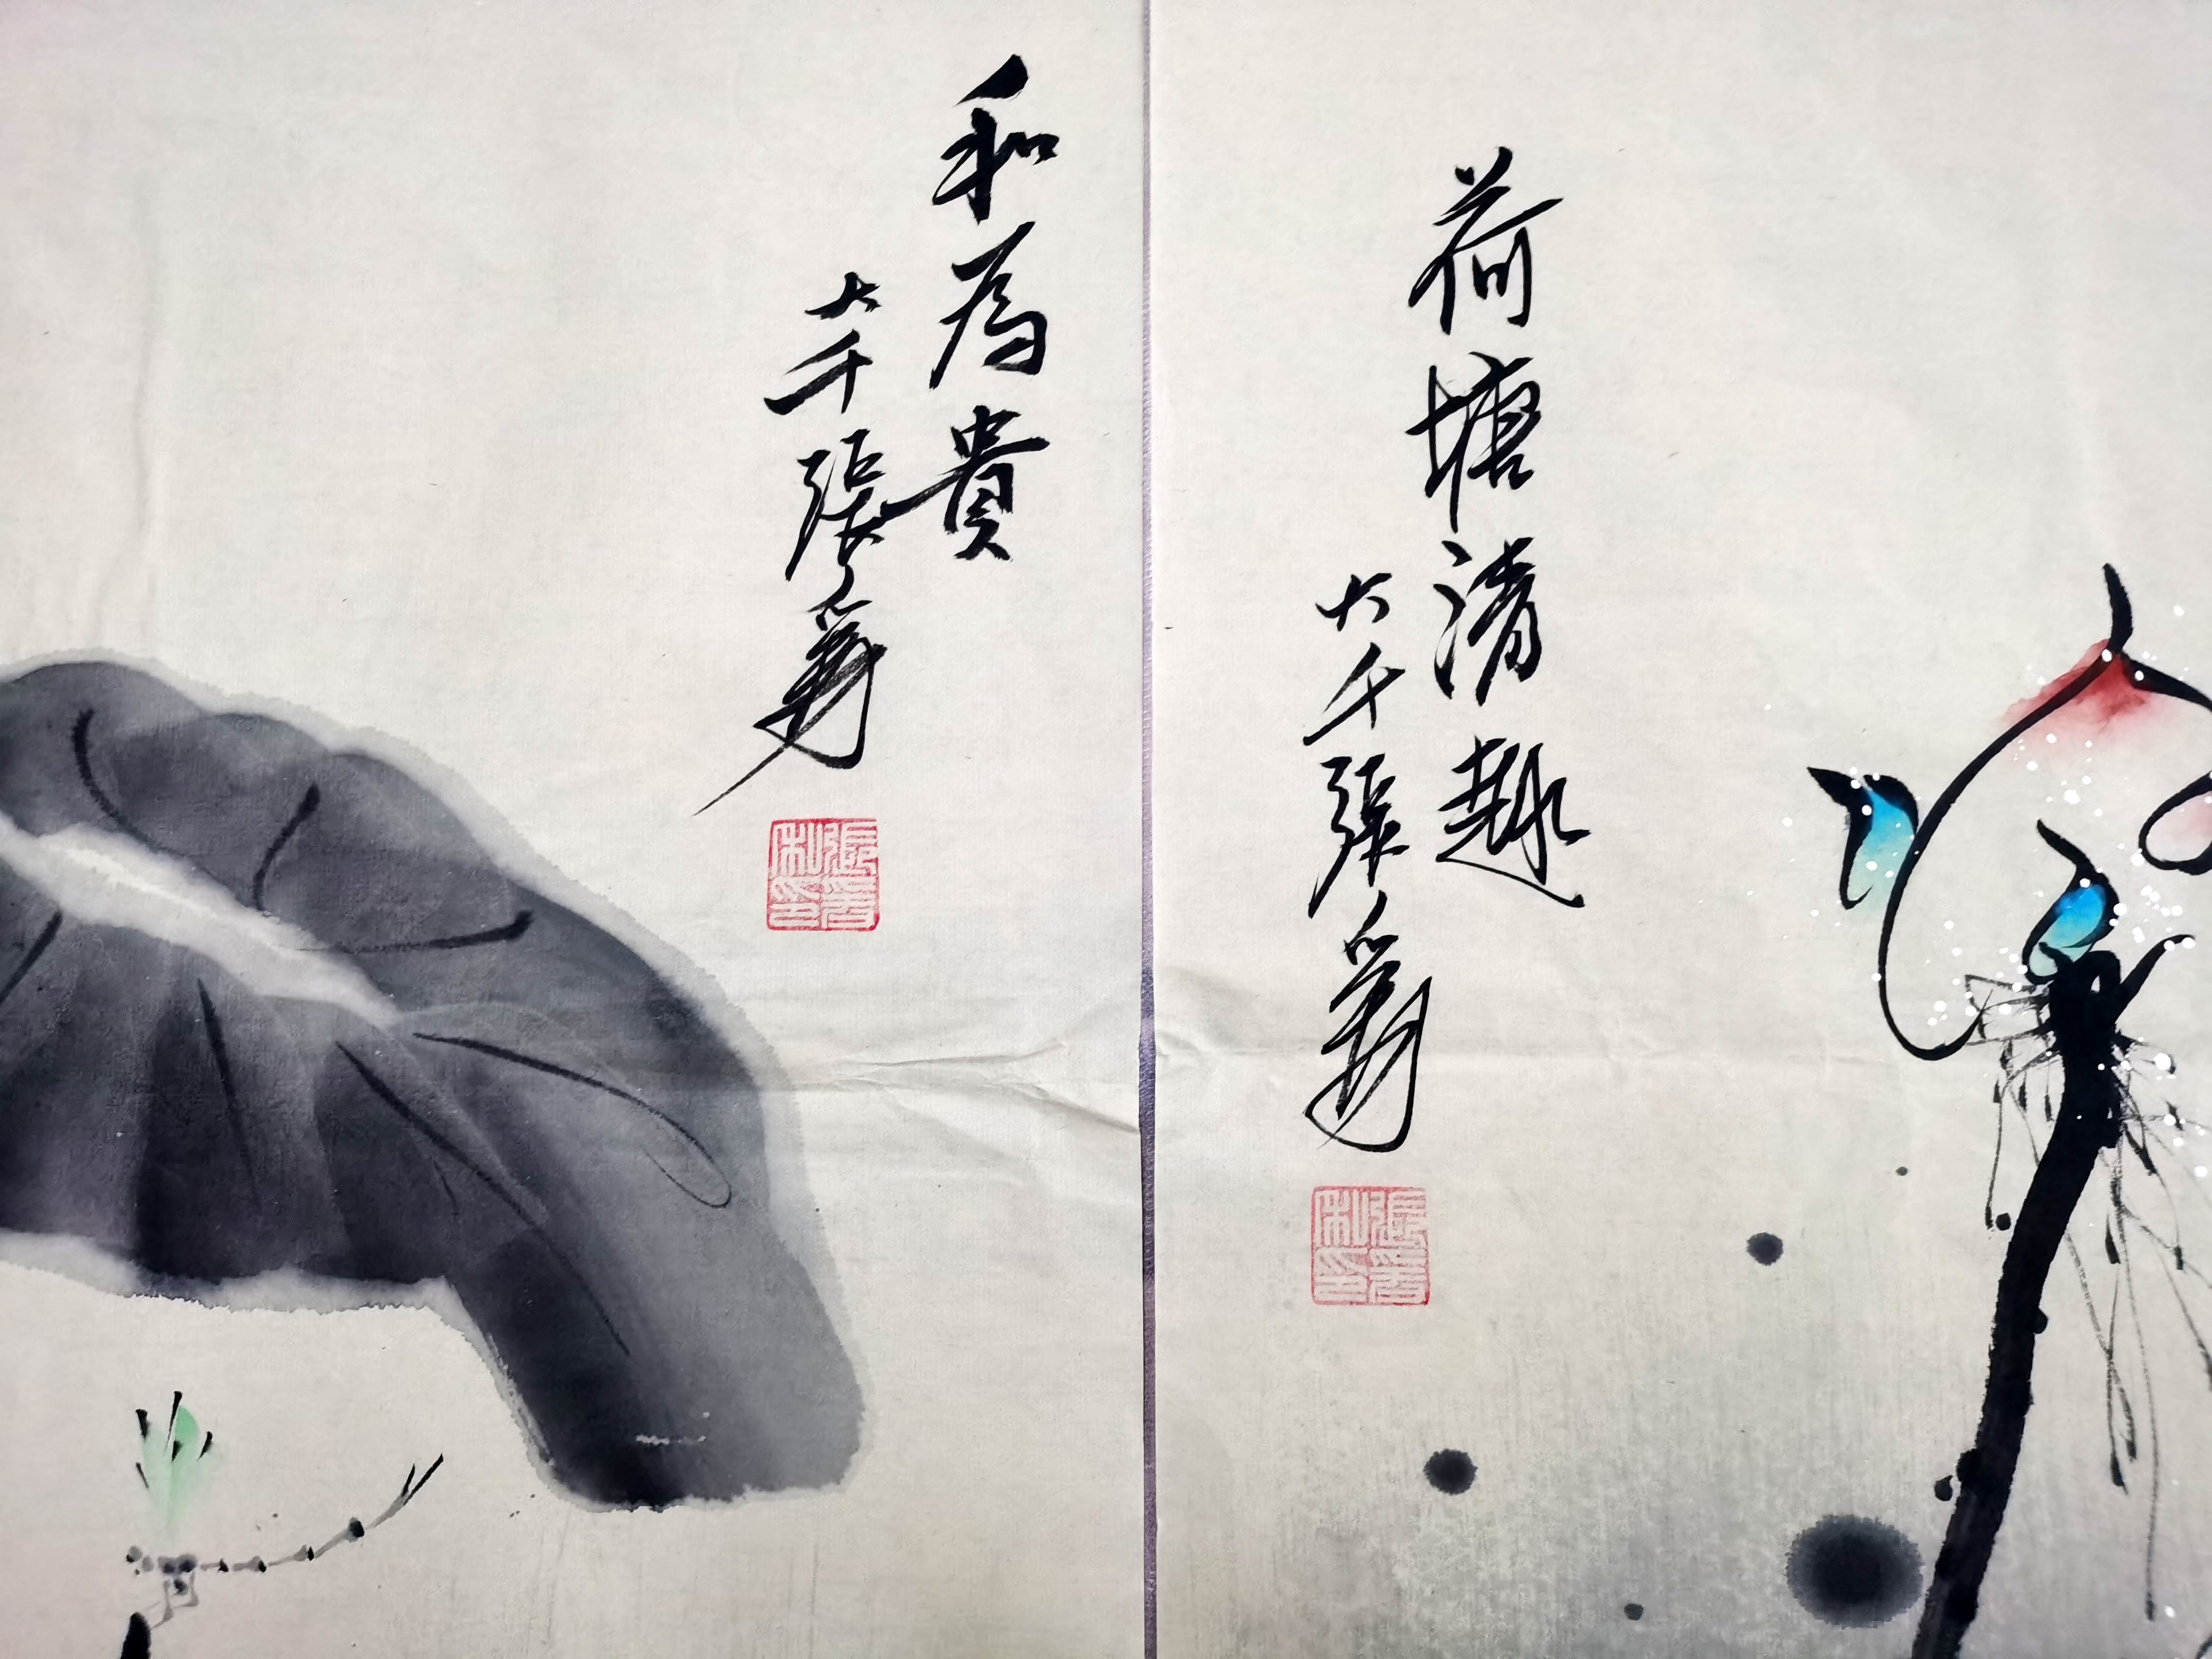 荷塘清趣
大千張爰
和為貴
大千張爰